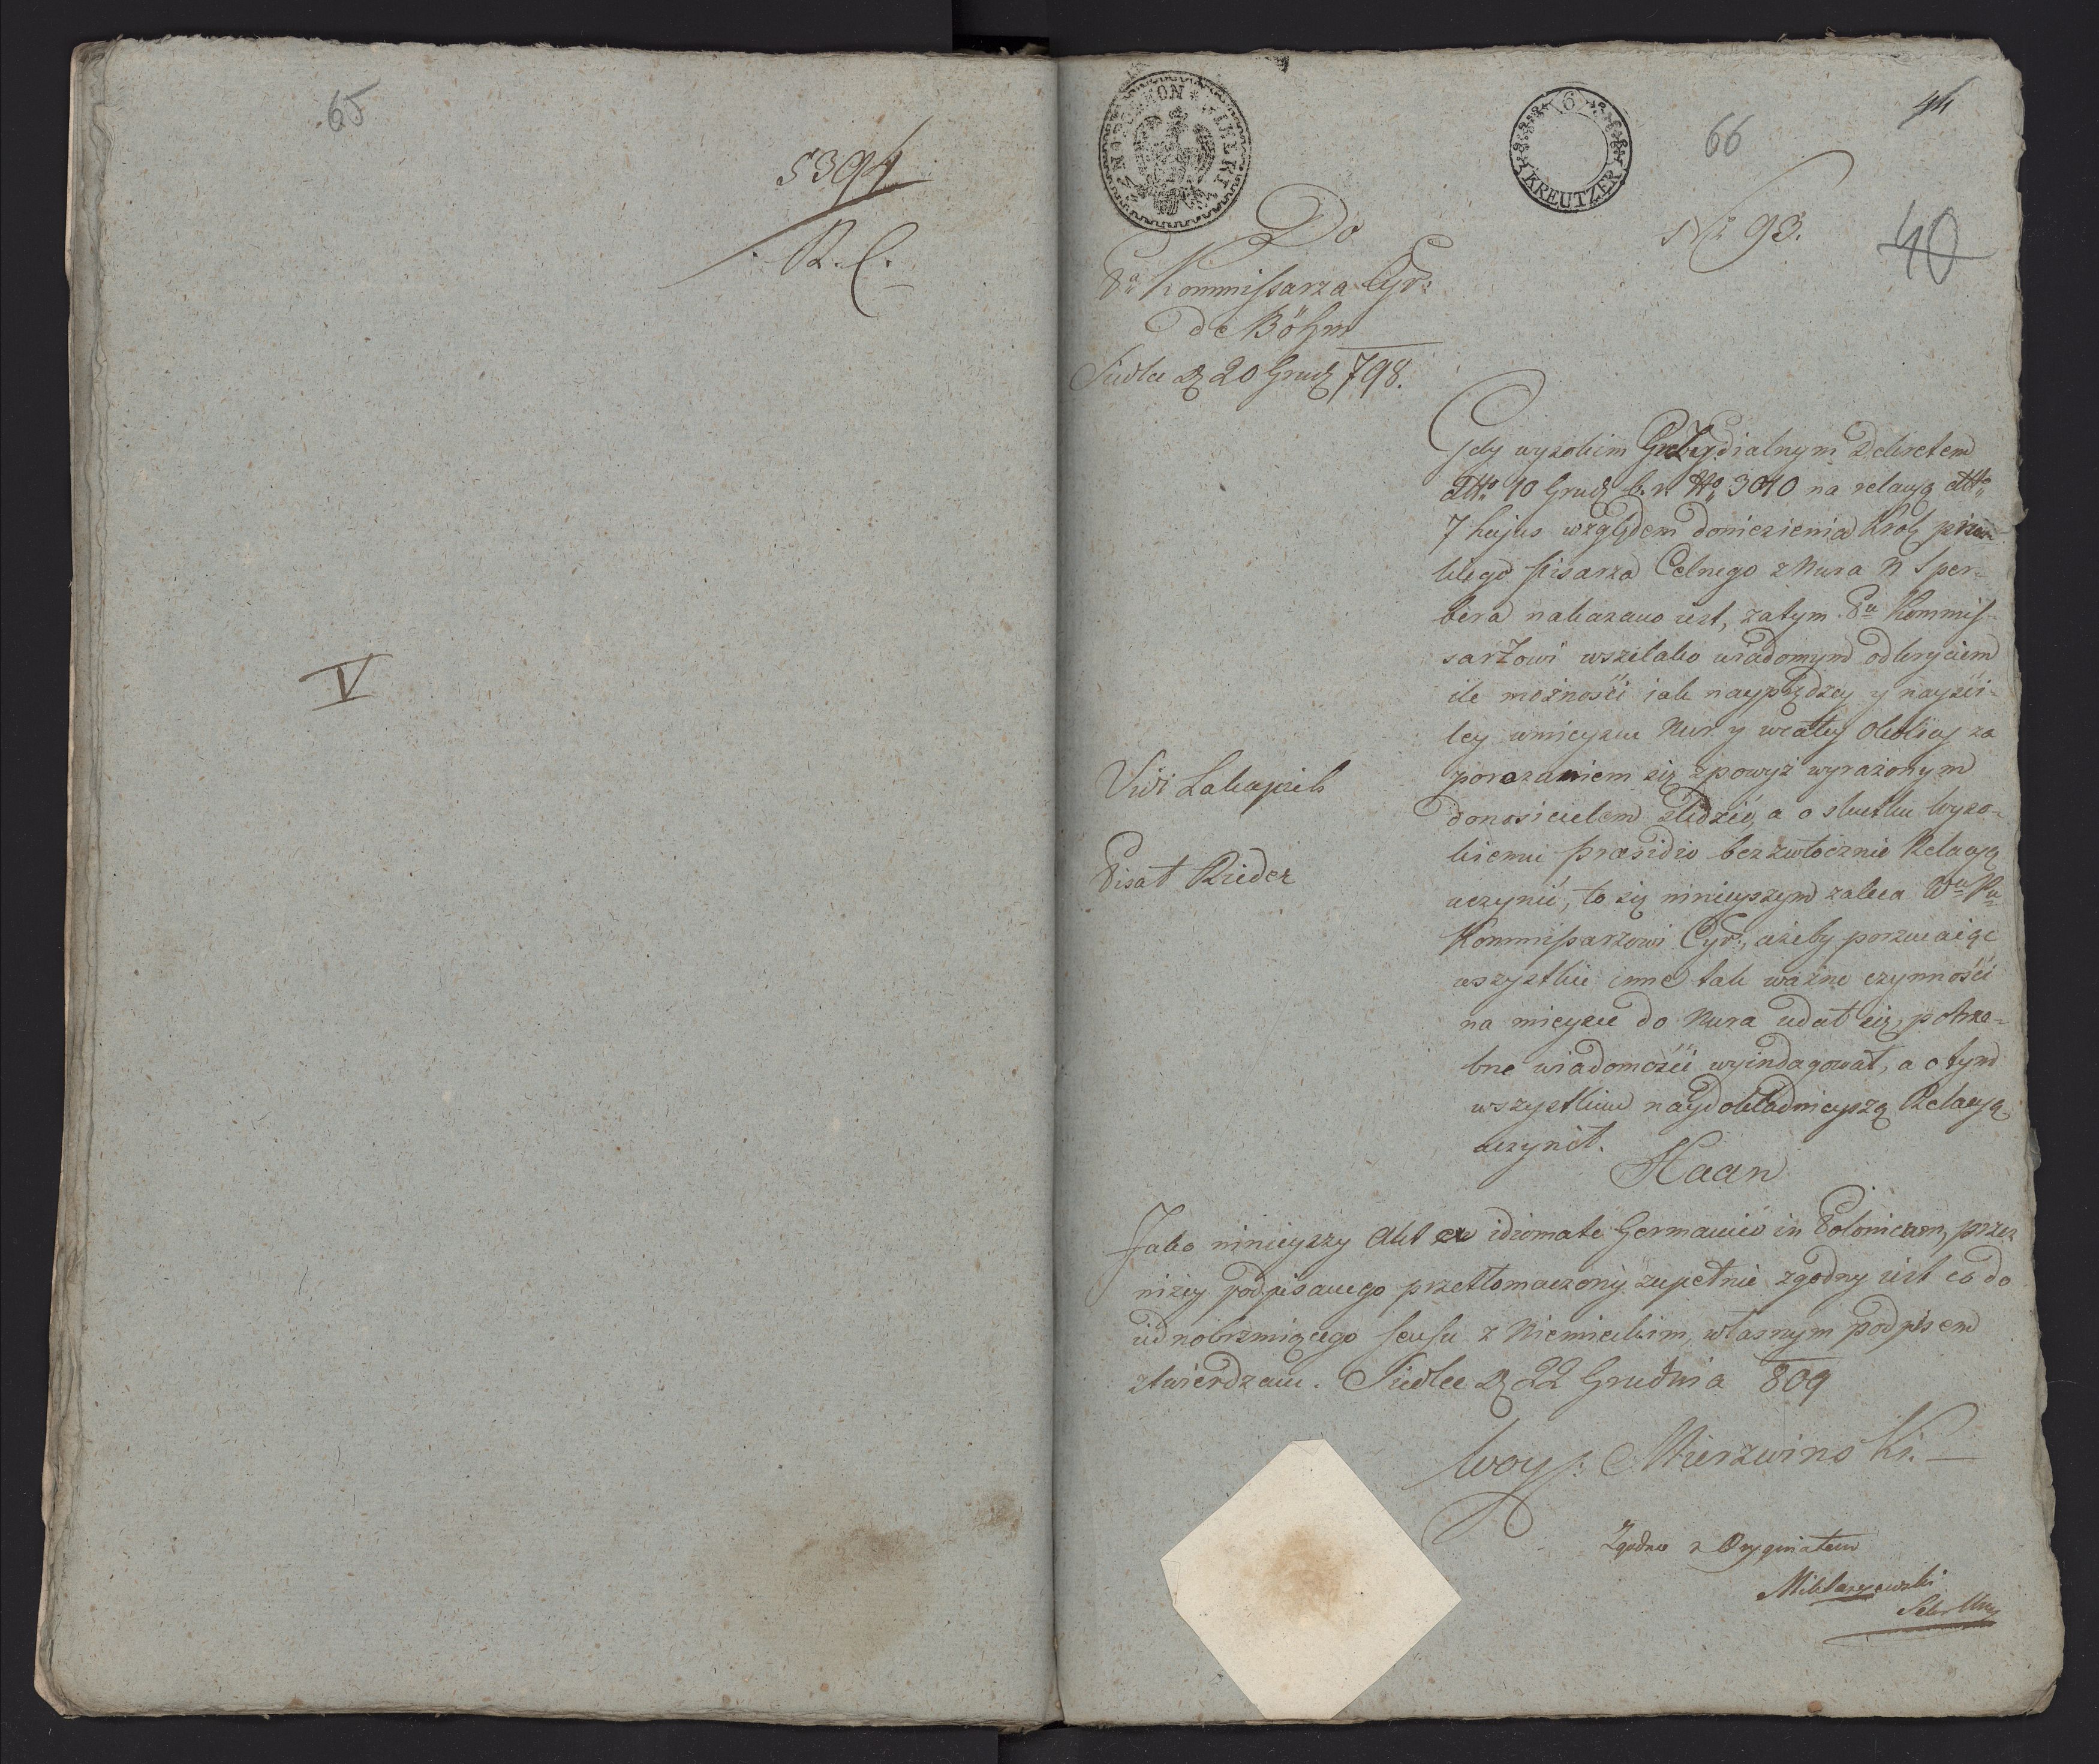 65
5394
R. C.
V
6
KREUTZER
66
Nr 93.
40
Do
Pa Kommissarza Cyr:
de Böhm
Siedlce D 20 Grud 798.
Gdy wysokim Dekretem
dtto 10 Grud b. r. No 3010 na relacyą dtto
7 hujus względem doniesienia Król prus-
kiego pisarza Celnego z Nura N Sper-
bera nakazano iest, zatym Pu Kommis-
sarzowi wszelako wiadomym odkryciem
ile możności iak nayprędzey y nayści-
ley wmieyscu Nur y wcałey Okolicy za
porozumiem się zpowyż wyrażonym
donosicielem śledzić, a o skutku Wyso-
kiemu præsidio bezzwłocznie Relacyą
uczynić, to się ninieyszym zaleca Wu Pu
Kommissarzowi Cyr:, ażeby porzucaiąc
wszystkie inne tak ważne czynności
na mieysce do Nura udał się, potrze-
bne wiadomości wyindagował, a o tym
wszystkim naydokładnieyszą Relacyą
uczynił.
Haan
Vidi
Pisał Rieder
Jako ninieyszy Akt ex idiomate Germanico in Polonicam, przez
niżey podpisanego przetłomaczony zupełnie zgodny iest co do
iednobrzmiącego sensu z Niemieckim, własnym podpisem
ztwierdzam. Siedlce D 22 Grudnia 809
Woy: Mierzwinski.
Zgodno z Oryginałem
Mikłaszewski